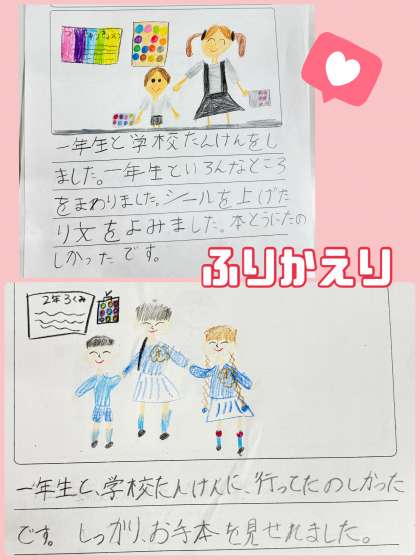 一年生と学校たんけんをし
ました。一年生といろんなところ
をまわりました。シールを上げた
り文をよみました。本とうにたの
しかったです。
ふりかえり
2年3くみ
一年生と、学校たんけんに、行ってたのしかった
です。しっかり、お手本を見せれました。